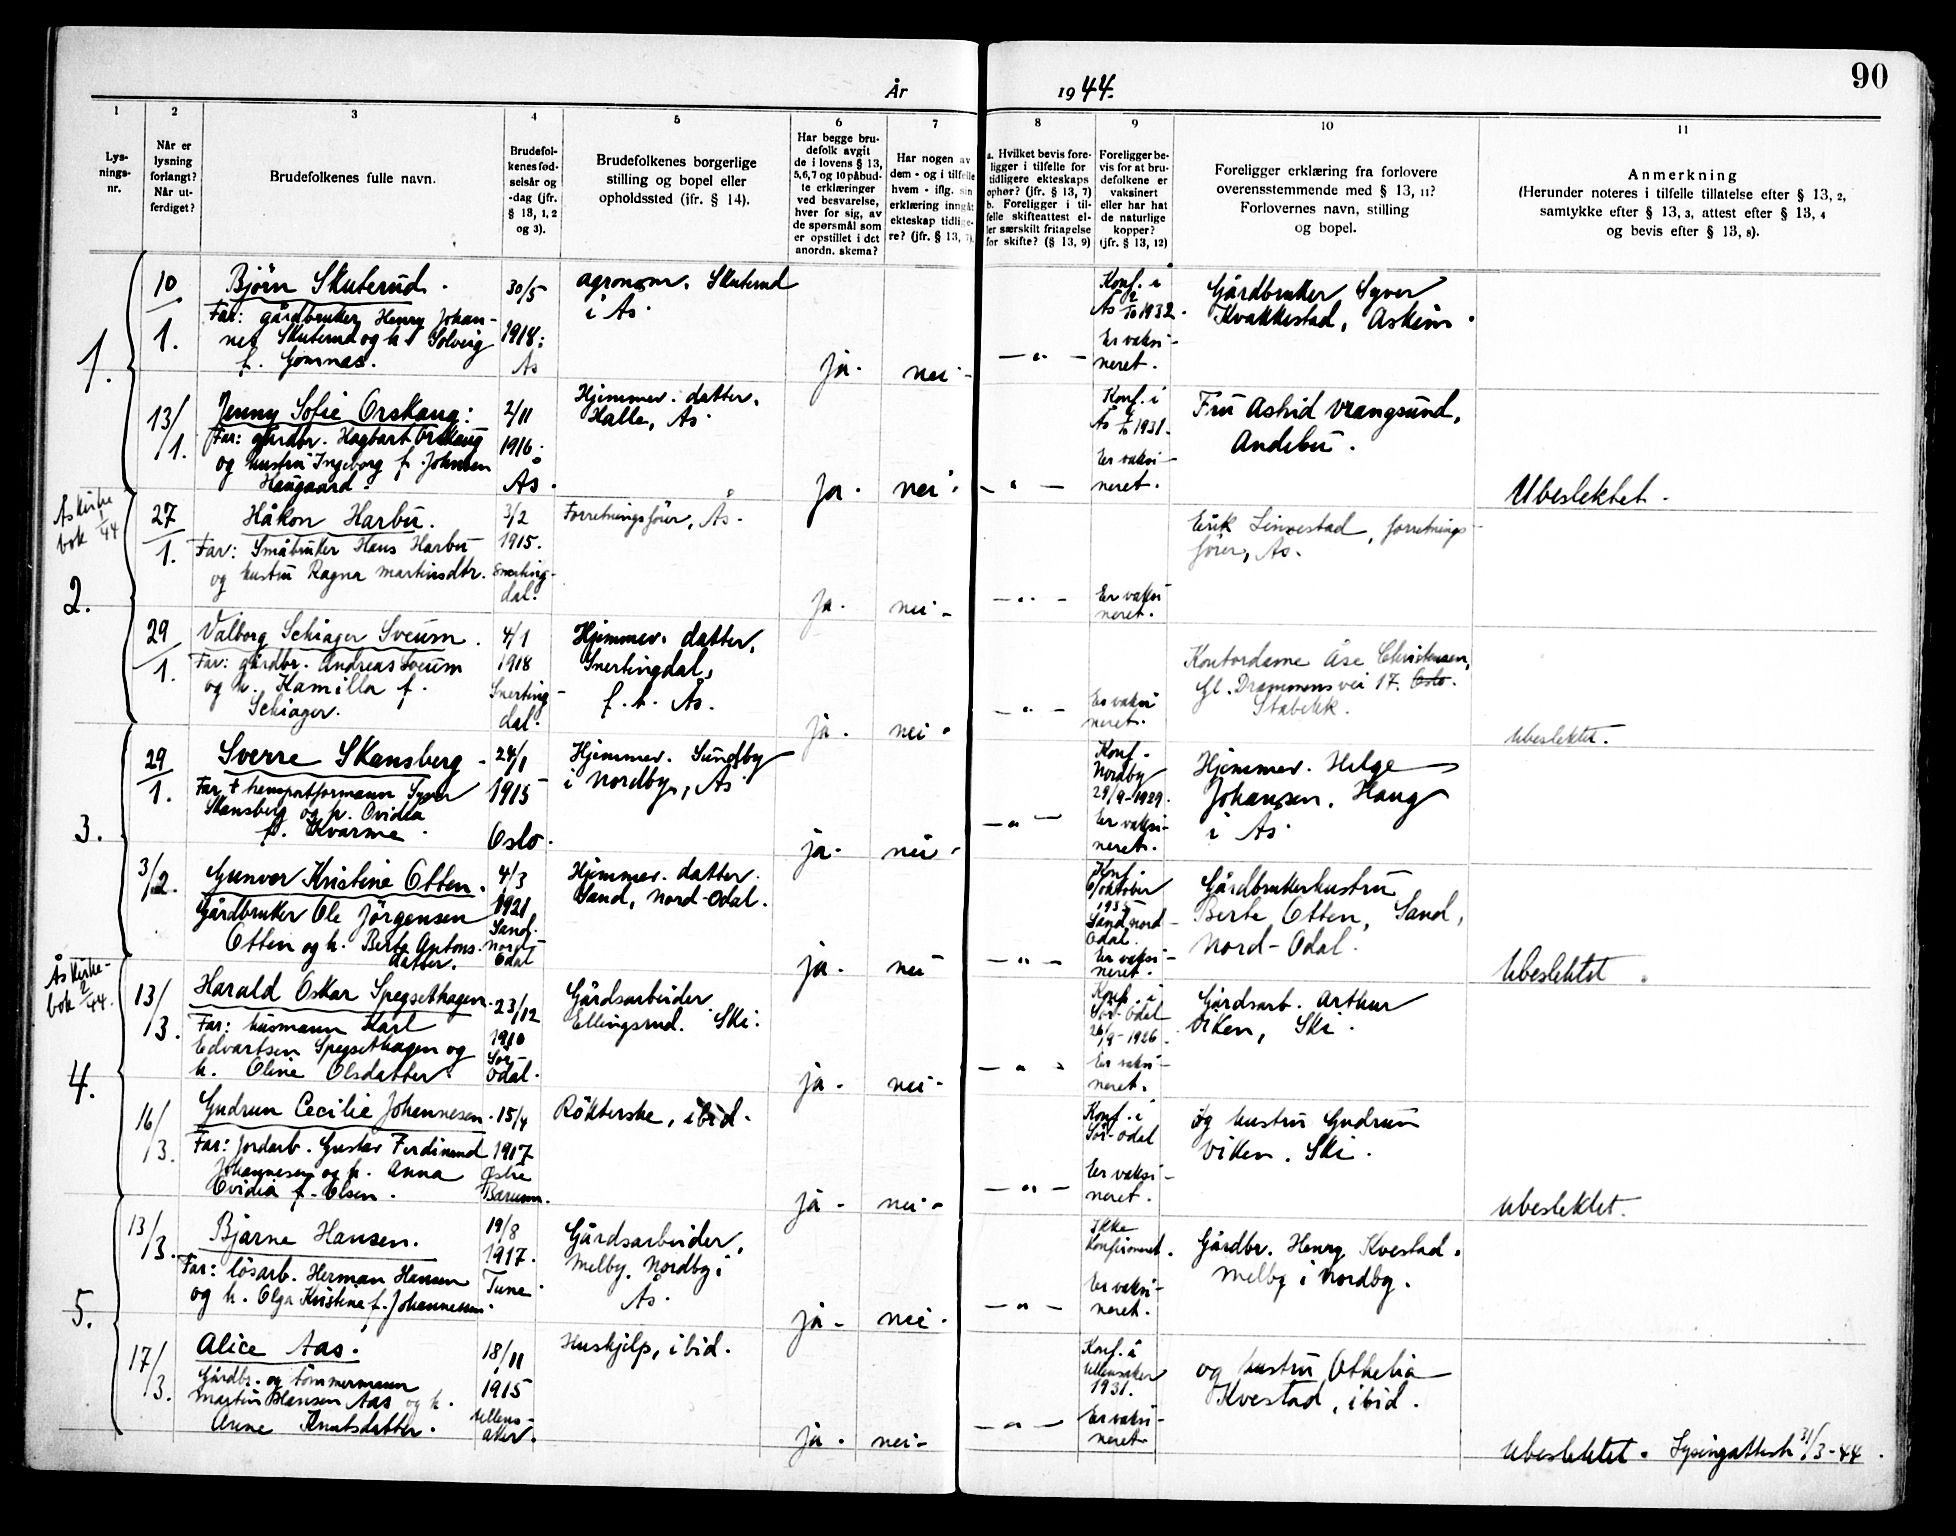 90
År 1944.
1
2
3
4
5
6
7
8
9
10
11
Lys-
nings-
nr.
Når er
lysning
forlangt?
Når ut-
ferdiget?
Brudefolkenes fulle navn.
Brudefol-
kenes fød-
selsår og
-dag (jfr.
§ 13, 1, 2
og 3).
Brudefolkenes borgerlige
stilling og bopel eller
opholdssted (jfr. § 14).
Har begge bru-
defolk avgit
de i lovens § 13,
5,6,7 og 10 påbud-
te erklæringer
ved besvarelse,
hver for sig, av
de spørsmål som
er opstillet i det
anordn. skema?
Har nogen av
dem - og i tilfelle
hvem - iflg. sin
erklæring inngåt
ekteskap tidlige-
re? (jfr. § 13, 7).
a. Hvilket bevis fore-
ligger i tilfelle for
tidligere ekteskaps
ophør? (jfr. § 13, 7)
b. Foreligger i til-
felle skifteattest el-
ler særskilt fritagelse
for skifte? (§ 13, 9)
Foreligger be-
vis for at bru-
defolkene er
vaksinert
eller har hat
de naturlige
kopper?
(jfr. § 13, 12)
Foreligger erklæring fra forlovere
overensstemmende med § 13, 11?
Forlovernes navn, stilling
og bopel.
Anmerkning
(Herunder noteres i tilfelle tillatelse efter § 13, 2,
samtykke efter § 13, 3, attest efter § 13, 4
og bevis efter § 13, 8).
1.
10/1.
Bjørn Skuterud.
Far: gårdbruker Henry Johan-
nes Skuterud og h. Solveig
f. Gomnæs.
30/5
1918.
Ås
agronom. Skuterud
i Ås.
ja.
nei -
- " -
Konf. i
Ås 2/10 1932.
Er vaksi-
neret.
Gårdbruker Syver
Kvakkestad, Askim.
13/1.
Jenny Sofie Orskaug.
Far: gårdbr. Hagbart Orskaug
og hustru Ingeborg f. Johnsen
Haugaard.
2/11
1916.
Ås.
Hjemmev. datter.
Halle, Ås.
ja.
nei.
- " -
Konf. i
Ås 4/10 1931.
Er vaksi-
neret.
Fru Astrid Vrangsund,
Andebu.
Ubeslektet.
Ås kirke
bok 1/44
2.
27/1.
Håkon Harbu.
Far: Småbruker Hans Harbu
og hustru Ragna Martinsdtr.
3/2
1915.
Snerting-
dal.
Forretningsfører, Ås.
ja.
nei -
- " -
Er vaksi
neret.
Erik Linnestad, forretnings-
fører, Ås.
29/1.
Valborg Schiager Sveum.
Far: gårdbr. Andreas Sveum
og h. Kamilla f.
Schiager.
4/1
1918
Snerting-
dal.
Hjemmev. datter,
Snertingdal,
f. t. Ås.
ja.
nei.
- " -
Er vaksi
neret.
Kontordame Åse Christensen,
Gl. Drammensvei 17. Oslo.
Stabekk.
Ubeslektet.
3.
29/1.
Sverre Skansberg
Far † transportformann Syver
Skansberg og h. Ovidia
f. Kvarme.
24/1
1915
Oslo.
Hjemmev. Sundby
i Nordby, Ås
ja.
nei.
- " -
Konf.
Nordby
29/9-1929.
Er vaksi-
neret.
Hjemmev. Helge
Johansen, Haug
i Ås.
3/2.
Gunvor Kristine Otten.
Gårdbruker Ole Jørgensen
Otten og h. Berte Antons-
datter.
4/3
1921
Sand.
Nord-
Odal
Hjemmev. datter.
Sand, Nord-Odal.
ja.
nei
- " -
Konf.
6/oktober
1935
Sand, Nord-
Odal.
Er vaksi-
neret.
Gårdbrukerhustru
Berte Otten, Sand,
Nord-Odal.
Ubeslektet.
Ås kirke-
bok 2/44.
4.
13/3.
Harald Oskar Spegsethagen.
Far: husmann Karl
Edvartsen Spegsethagen og
h. Oline Olsdatter.
23/12
1910
Sør-
Odal.
Gårdsarbeider.
Ellingsrud. Ski.
ja.
nei.
- " -
Konf. i
Sør-Odal
26/9-1926.
Er vaksi-
neret.
Gårdsarb. Arthur
Viken, Ski.
16/3.
Gudrun Cecilie Johannesen.
Far: Jordarb. Gustav Ferdinand
Johannesen og h. Anna
Ovidia f. Olsen.
15/4
1917
Østre
Bærum.
Røkterske, ibid.
ja.
nei.
- " -
Konf. i
Sør-Odal
Er vaksi-
neret.
og hustru Gudrun
Viken. Ski.
Ubeslektet.
5.
13/3.
Bjarne Hansen.
Far: løsarb. Herman Hansen
og h. Olga Kristine f. Johannesen.
19/8
1917.
Tune
Gårdsarbeider,
Melby. Nordby i
Ås.
ja.
nei.
- " -
Ikke
konfirmeret.
Er vaksi-
neret.
Gårdbr. Henry Kvestad.
Melby i Nordby.
17/3.
Alice Aas.
Gårdbr. og tømmermann
Martin Hansen Aas og h.
Anne Knutsdatter.
18/11
1915
Ullens-
aker.
Hushjelp, ibid.
ja.
nei-
- " -
Konf. i
Ullensaker
1931.
Er vaksi-
neret
og hustru Othelia
Kvestad, ibid.
Ubeslektet. Lysingattest 31/3-44.